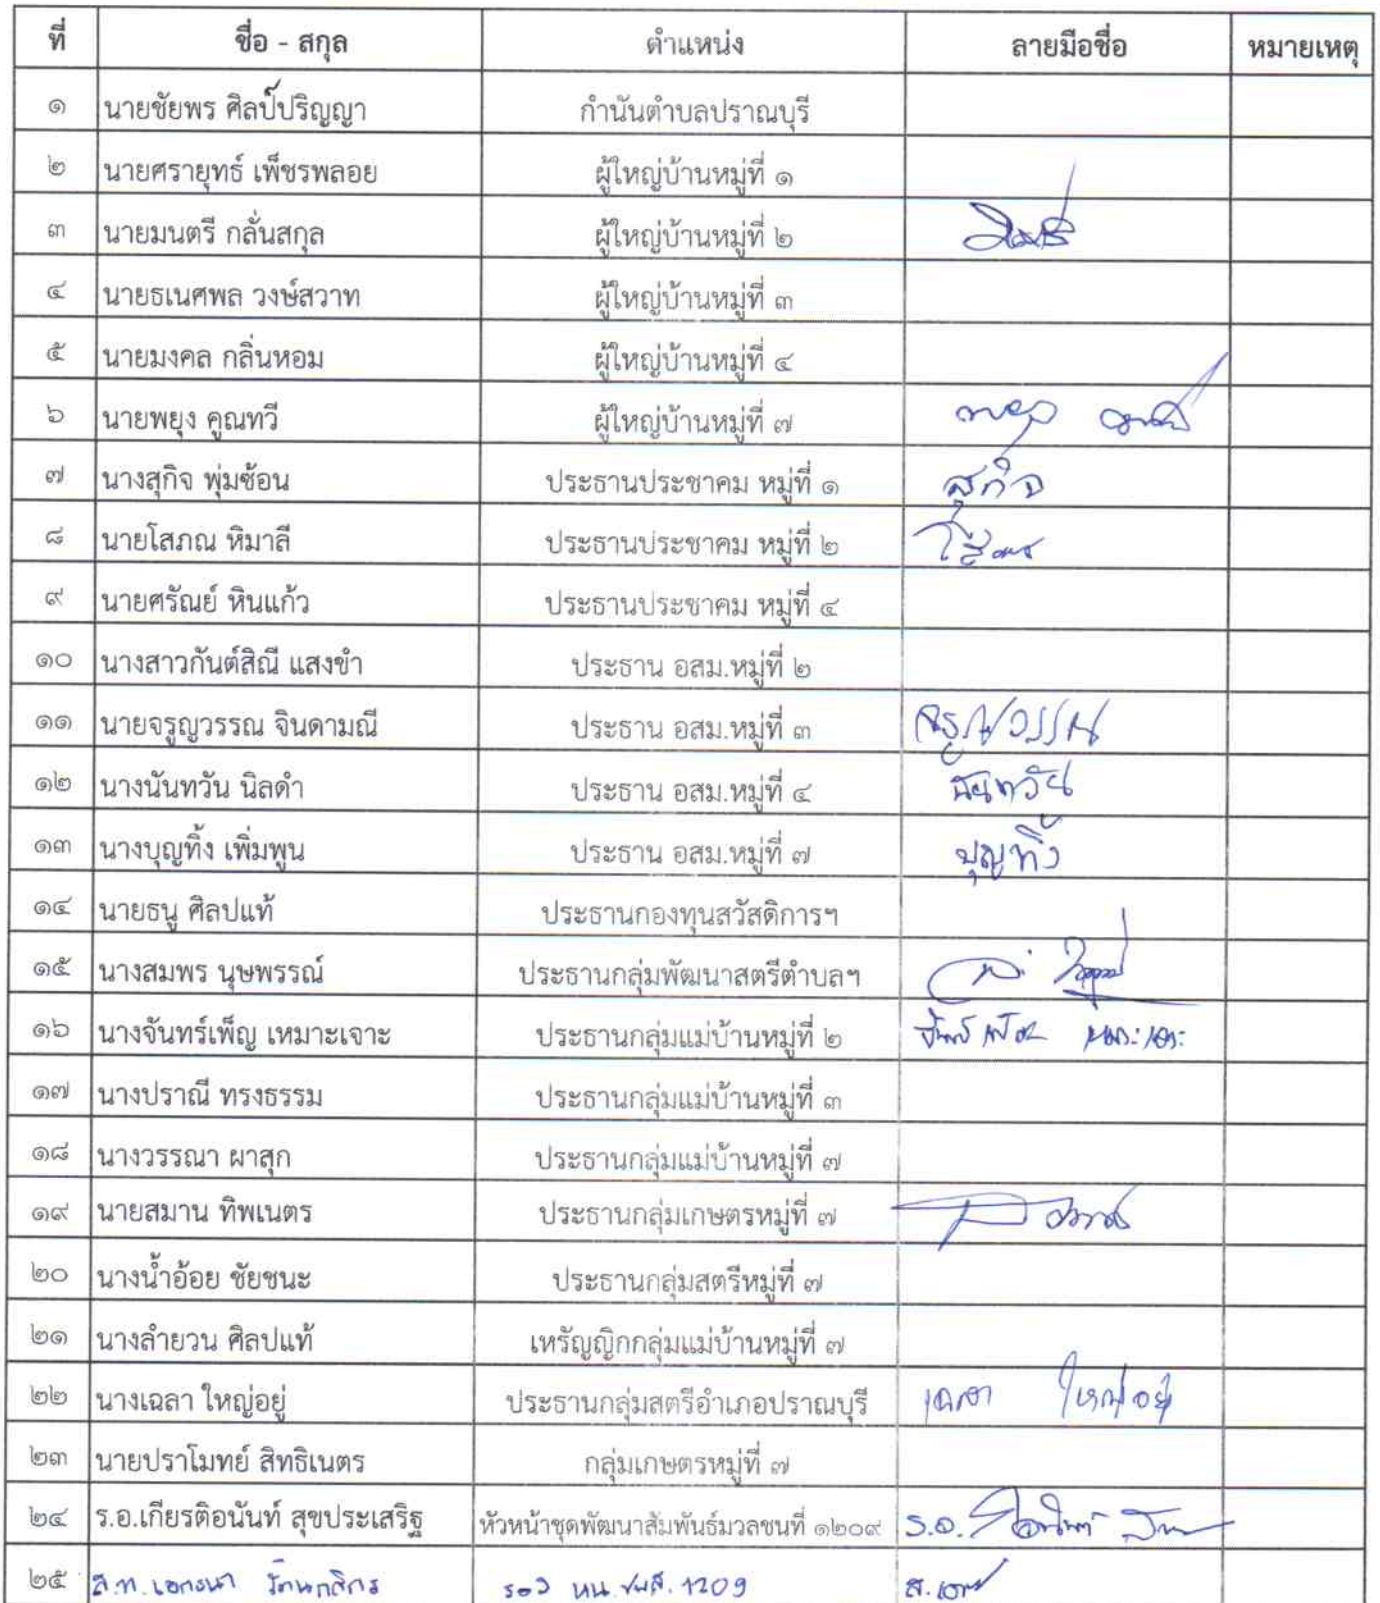 ที่ ชื่อ - สกุล ตำแหน่ง ลายมือชื่อ หมายเหตุ
๑ นายชัยพร ศิลป์ปริญญา กำนันตำบลปราณบุรี
๒ นายศรายุทธ์ เพ็ชรพลอย ผู้ใหญ่บ้านหมู่ที่ ๑
๓ นายมนตรี กลั่นสกุล ผู้ใหญ่บ้านหมู่ที่ ๒
๔ นายธเนศพล วงษ์สวาท ผู้ใหญ่บ้านหมู่ที่ ๓
๕ นายมงคล กลิ่นหอม ผู้ใหญ่บ้านหมู่ที่ ๔
๖ นายพยุง คูณทวี ผู้ใหญ่บ้านหมู่ที่ ๗
๗ นางสุกิจ พุ่มซ้อน ประธานประชาคม หมู่ที่ ๑ สุกิจ
๘ นายโสภณ หิมาลี ประธานประชาคม หมู่ที่ ๒
๙ นายศรัณย์ หินแก้ว ประธานประชาคม หมู่ที่ ๔
๑๐ นางสาวกันต์สิณี แสงขำ ประธาน อสม.หมู่ที่ ๒
๑๑ นายจรูญวรรณ จินดามณี ประธาน อสม.หมู่ที่ ๓ จรูญวรรณ
๑๒ นางนันทวัน นิลดำ ประธาน อสม.หมู่ที่ ๔ นันทวัน
๑๓ นางบุญทิ้ง เพิ่มพูน ประธาน อสม.หมู่ที่ ๗ บุญทิ้ง
๑๔ นายธนู ศิลปแท้ ประธานกองทุนสวัสดิการฯ
๑๕ นางสมพร นุษพรรณ์ ประธานกลุ่มพัฒนาสตรีตำบลฯ
๑๖ นางจันทร์เพ็ญ เหมาะเจาะ ประธานกลุ่มแม่บ้านหมู่ที่ ๒ จันทร์เพ็ญ เหมาะเจาะ
๑๗ นางปราณี ทรงธรรม ประธานกลุ่มแม่บ้านหมู่ที่ ๓
๑๘ นางวรรณา ผาสุก ประธานกลุ่มแม่บ้านหมู่ที่ ๗
๑๙ นายสมาน ทิพเนตร ประธานกลุ่มเกษตรหมู่ที่ ๗
๒๐ นางน้ำอ้อย ชัยชนะ ประธานกลุ่มสตรีหมู่ที่ ๗
๒๑ นางลำยวน ศิลปแท้ เหรัญญิกกลุ่มแม่บ้านหมู่ที่ ๗
๒๒ นางเฉลา ใหญ่อยู่ ประธานกลุ่มสตรีอำเภอปราณบุรี เฉลา ใหญ่อยู่
๒๓ นายปราโมทย์ สิทธิเนตร กลุ่มเกษตรหมู่ที่ ๗
๒๔ ร.อ.เกียรติอนันท์ สุขประเสริฐ หัวหน้าชุดพัฒนาสัมพันธ์มวลชนที่ ๑๒๐๙ ร.อ.
๒๕ ส.ท. รอง หน.ชพส.1209